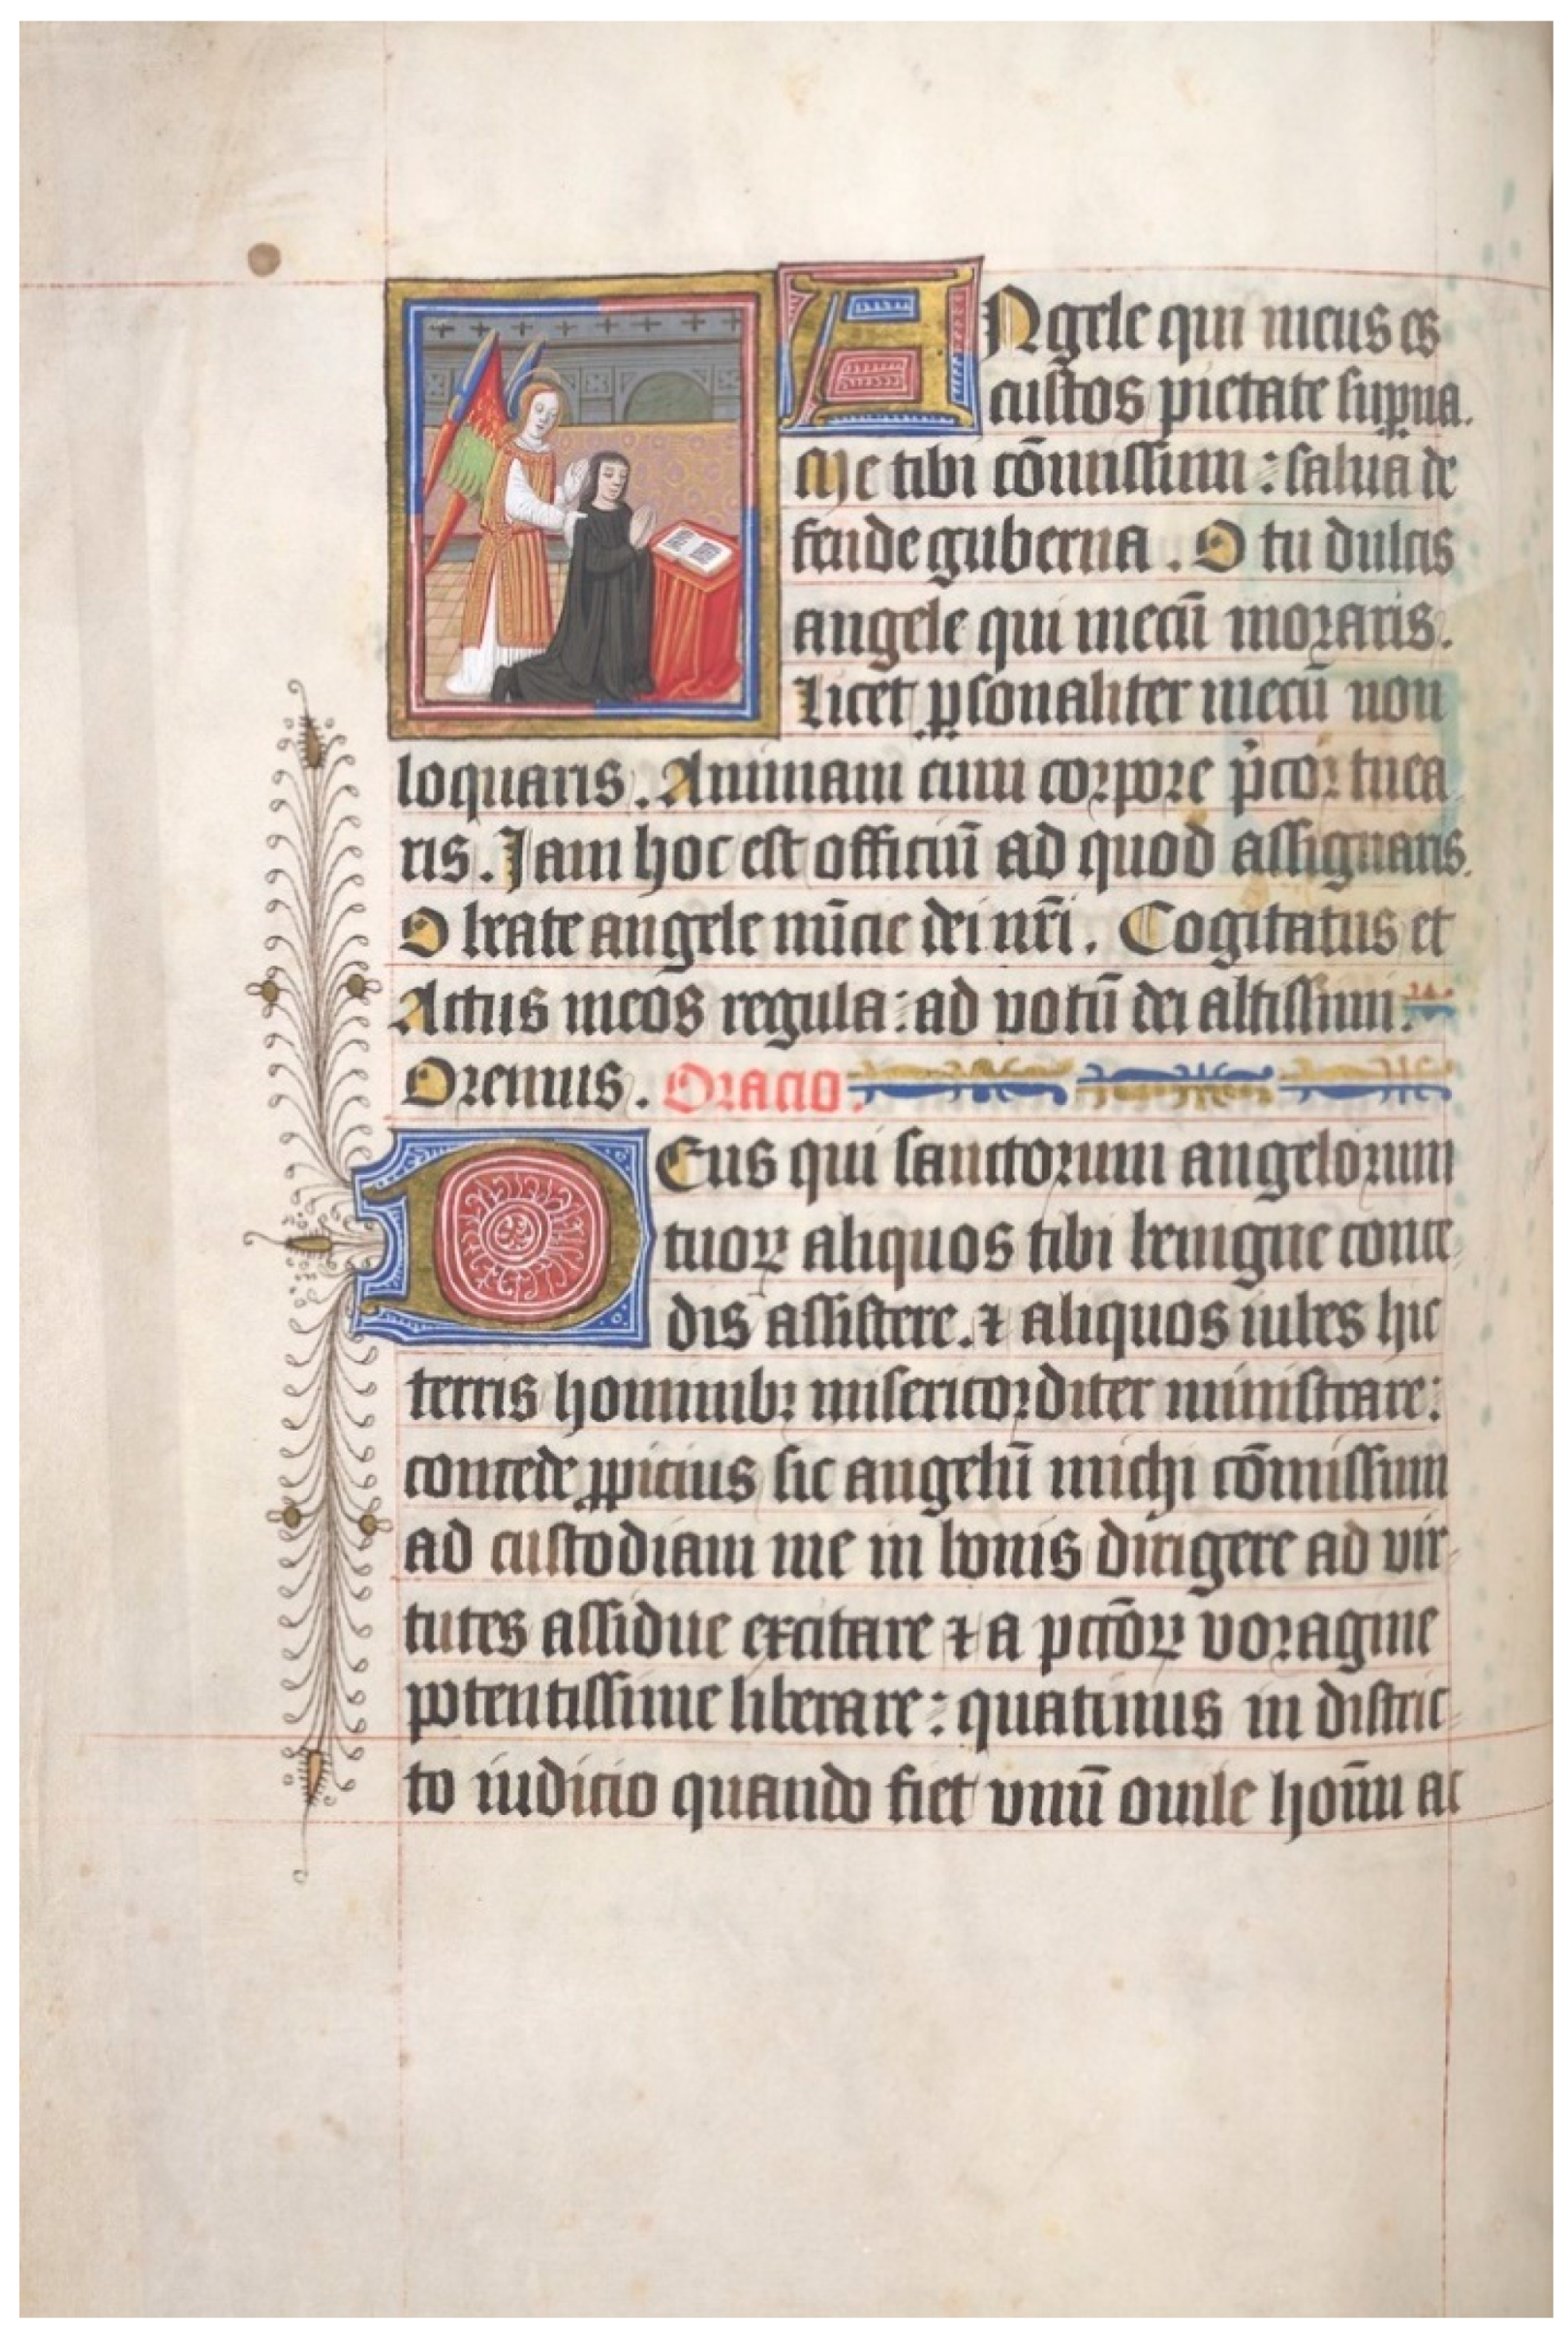 ANgele qui meus es
custos pietate sup̲na.
Me tibi cōmissum : salua de
fende guberna . O tu dulcis
angele qui mecū moraris.
Licet p̲sonaliter mecū non
loquaris . Animam cum corpore p̄cor tuea
ris . Jam hoc est officiū ad quod assignaris.
O beate angele nūcie dei nr̄i . Cogitatus et
Actus meos regula : ad votū dei altissimi .
Oremus . Oracio .
DEus qui sanctorum angelorum
tuoꝝ aliquos tibi benigne conce
dis assistere . ⁊ aliquos iubes hic
terris hominibꝫ misericorditer ministrare :
concede ꝓpicius sic angelū michi cōmissum
ad custodiam me in bonis dirigere ad vir-
tutes assidue excitare ⁊ a pctōꝝ voragine
potentissime liberare : quatinus in distric-
to iudicio quando fiet vnū ouile hoīnū ac